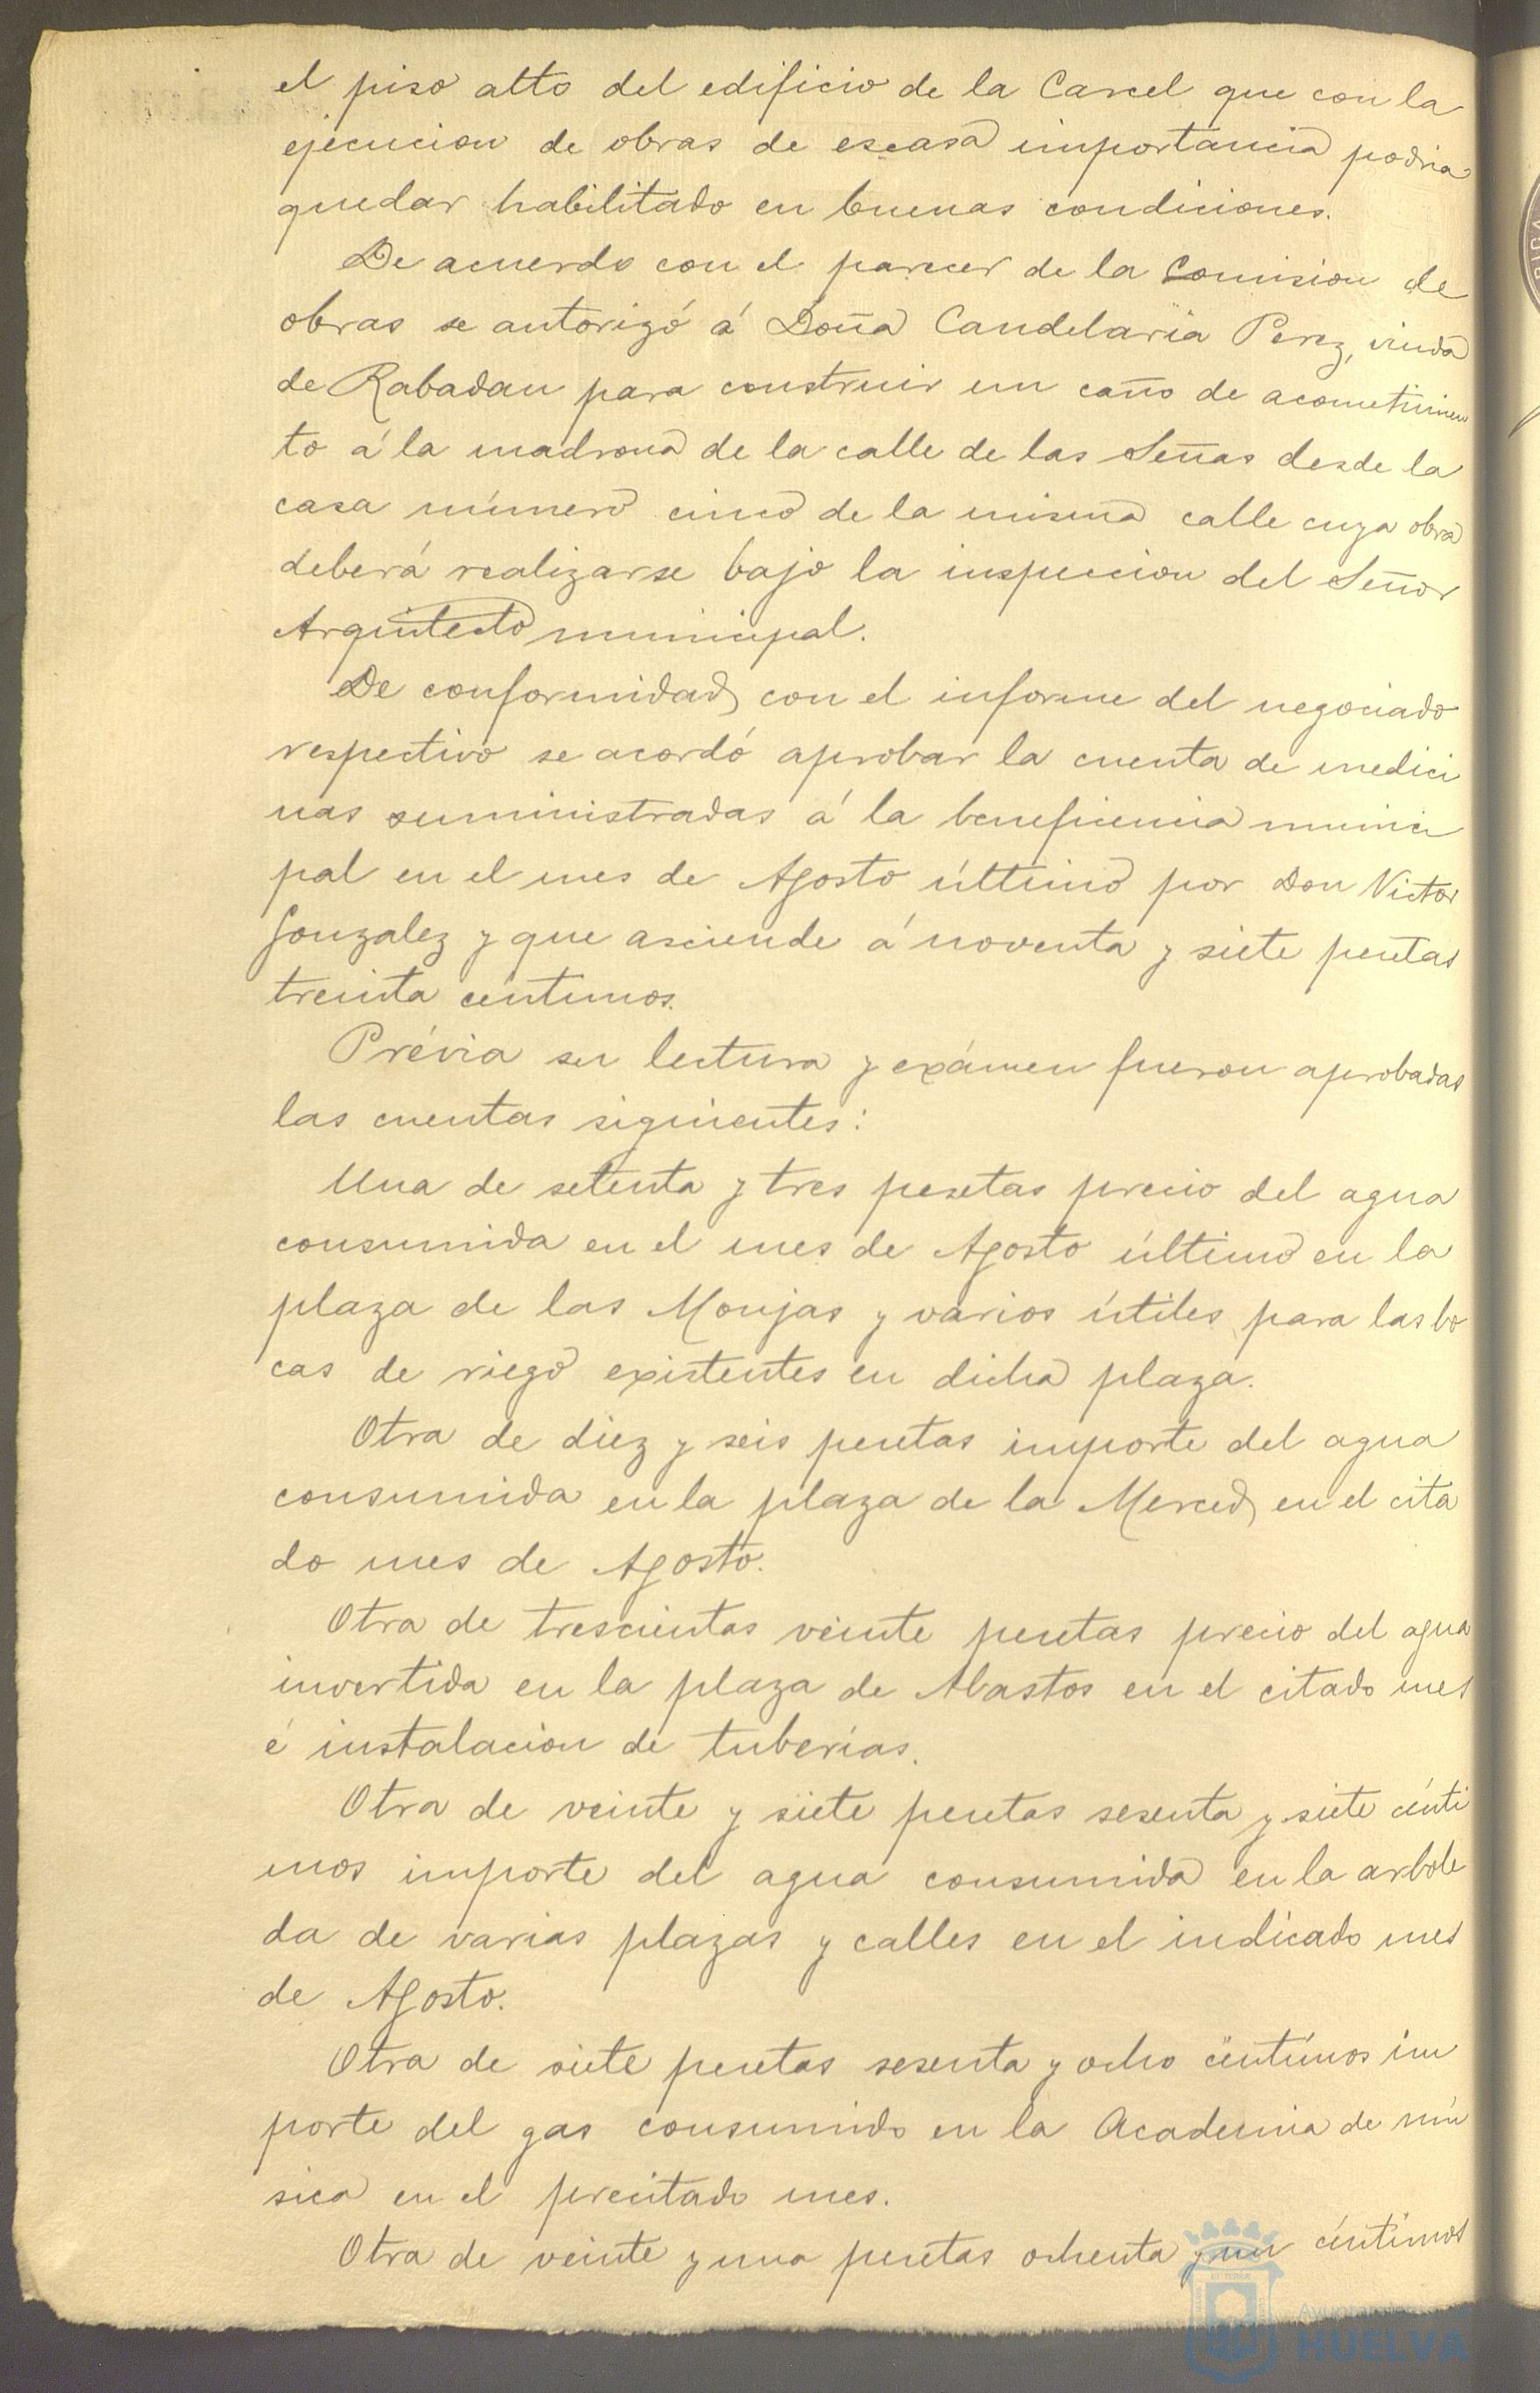 el piso alto del edificio de la Carcel que con la
ejecucion de obras de escasa importancia podria
quedar habilitado en buenas condiciones.
De acuerdo con el parecer de la Comision de
obras se autorizó á Doña Candelaria Perez, viuda
de Rabadan para construir un caño de acometimien
to á la madrona de la calle de las Señas desde la
casa número cinco de la misma calle cuya obra
deberá realizarse bajo la inspeccion del Señor
Arquitecto municipal.
De conformidad con el informe del negociado
respectivo se acordó aprobar la cuenta de medici
nas suministradas á la beneficencia munici
pal en el mes de Agosto último por Don Victor
Gonzalez y que asciende á noventa y siete pesetas
treinta centimos.
Prévia su lectura y exámen fueron aprobadas
las cuentas siguientes:
Una de setenta y tres pesetas precio del agua
consumida en el mes de Agosto último en la
plaza de las Monjas y varios útiles para las bo
cas de riego existentes en dicha plaza.
Otra de diez y seis pesetas importe del agua
consumida en la plaza de la Merced en el cita
do mes de Agosto.
Otra de trescientas veinte pesetas precio del agua
invertida en la plaza de Abastos en el citado mes
é instalacion de tuberias.
Otra de veinte y siete pesetas sesenta y siete cénti
mos importe del agua consumida en la arbole
da de varias plazas y calles en el indicado mes
de Agosto.
Otra de siete pesetas sesenta y ocho céntimos im
porte del gas consumido en la Academia de mú
sica en el precitado mes.
Otra de veinte y una pesetas ochenta y un céntimos
Ayuntamiento de
HUELVA